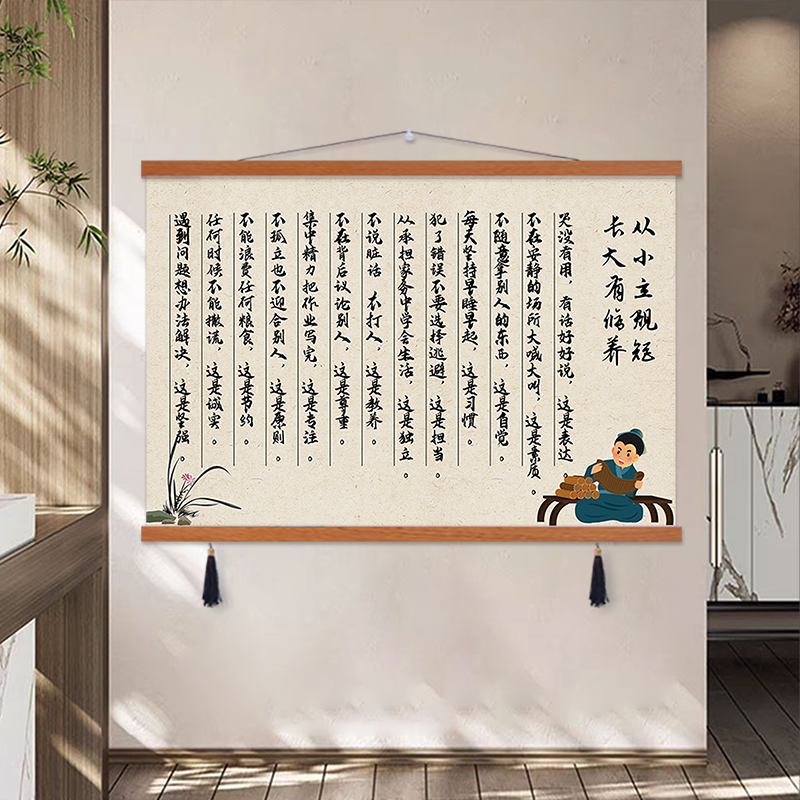 从小立规矩
长大有修养
哭没有用，有话好好说，这是表达。
不在安静的场所大喊大叫，这是素质。
不随意拿别人的东西，这是自觉。
每天坚持早睡早起，这是习惯。
犯了错误不要选择逃避，这是担当。
从承担家务中学会生活，这是独立。
不说脏话 不打人，这是教养。
不在背后议论别人，这是尊重。
集中精力把作业写完，这是专注。
不孤立也不迎合别人，这是原则。
不能浪费任何粮食，这是节约。
任何时候不能撒谎，这是诚实。
遇到问题想办法解决，这是坚强。